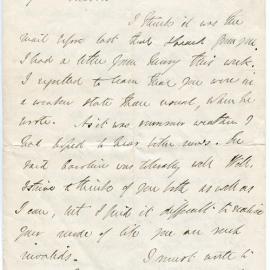 I think it was the
mail before last that I heard from you.
I had a letter from Henry this week.
I regretted to learn that you were in
a weaker state than usual, when he
wrote. As it was summer weather I
had hoped to hear better news. He
said Caroline was tolerably well. Well.
I strive to think of you both as well as
I can, but I find it difficult to realise
your mode of life you are such
invalids.
I must write to